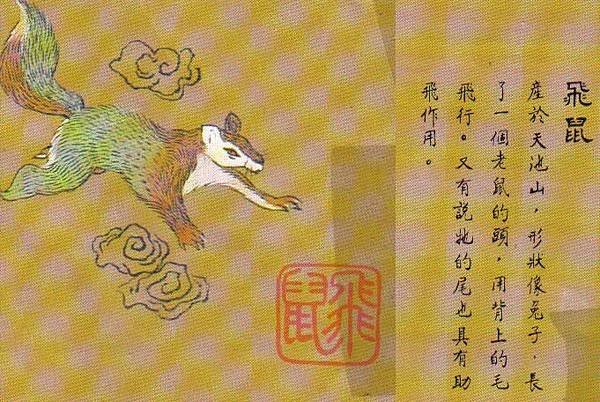 飛鼠
產於天池山，形狀像兔子．長
了一個老鼠的頭，用背上的毛
飛行。又有説牠的尾也具有助
飛作用。
飛鼠